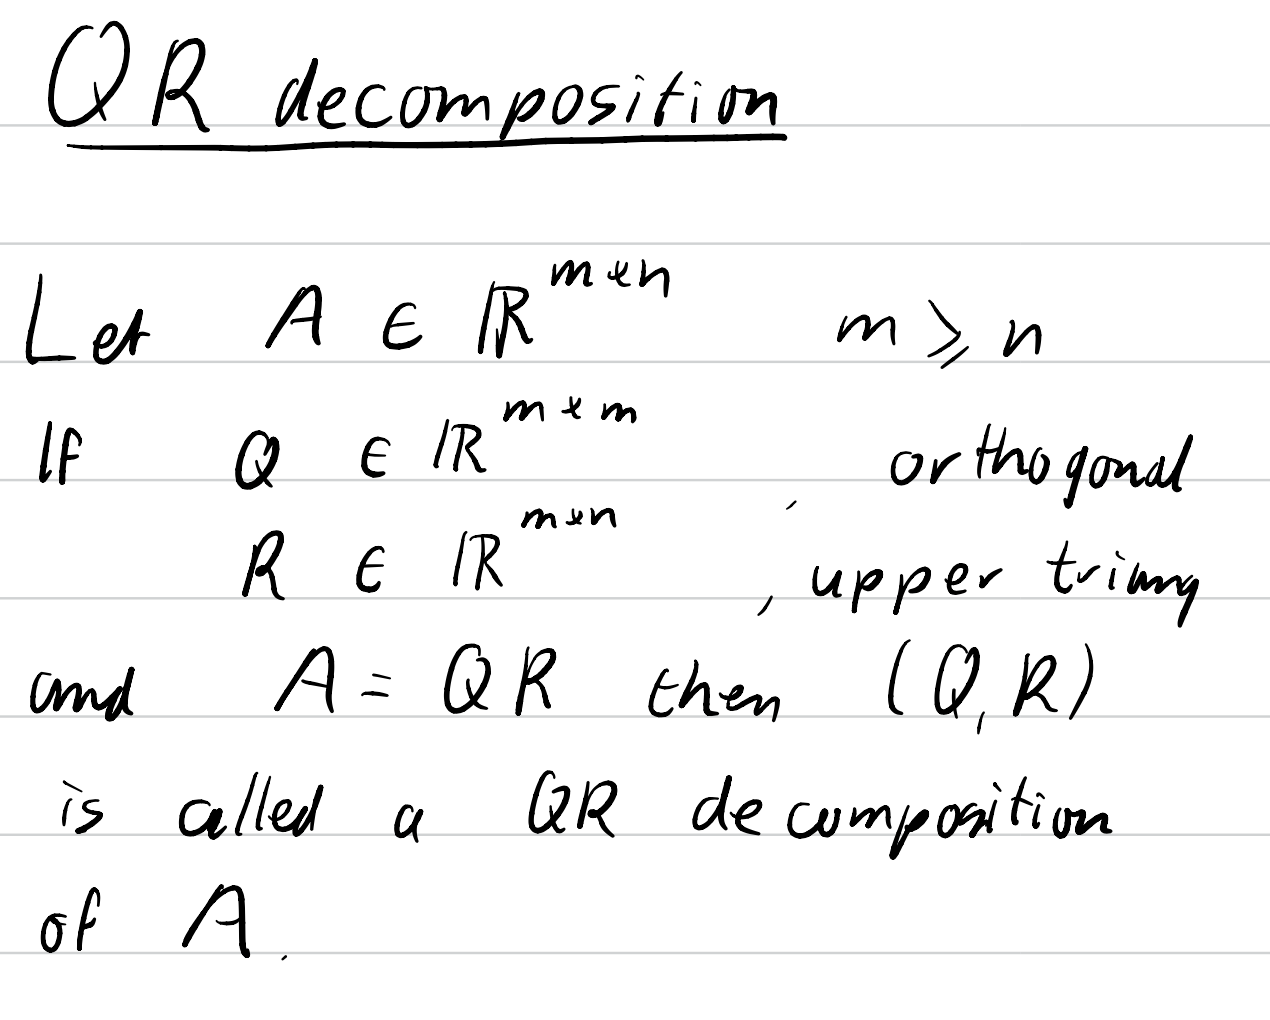 QR decomposition
Let A ∈ ℝ^{m×n} m ⩾ n
If Q ∈ ℝ^{m×m} , orthogonal
R ∈ ℝ^{m×n} , upper triang
and A = QR then (Q, R)
is called a QR decomposition
of A.